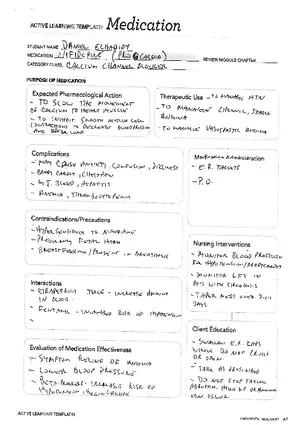 ACTIVE LEARNING TEMPLATE: Medication
STUDENT NAME DANIEL
MEDICATION NIFEDIPINE (PROCARDIA)
REVIEW MODULE CHAPTER
CATEGORY CLASS CALCIUM CHANNEL BLOCKER
PURPOSE OF MEDICATION
Expected Pharmacological Action
- TO SLOW THE MOVEMENT
OF CALCIUM TO HEART MUSCLE
- TO INHIBIT SMOOTH MUSCLE CELL
CONTRACTIONS DECREASE BLOOD PRESSURE
AND
Therapeutic Use - TO MANAGE HTN
- TO MANAGEMENT CHRONIC, STABLE
ANGINA
- TO MANAGE VASOSPASTIC ANGINA
Complications
- MAY CAUSE ANXIETY, CONFUSION, DIZZINESS
- MAY CARDIO,
- G.I. BLEED, HEPATITIS
- ANEMIA, THROMBOCYTOPENIA
Medication Administration
- E.R. TABLETS
- P.O.
Contraindications/Precautions
- HYPERSENSITIVITY TO NIFEDIPINE
- PREGNANCY FETAL HARM
- BREASTFEEDING/PRESENT IN BREASTMILK
Nursing Interventions
- MONITOR BLOOD PRESSURE
FOR HYPOTENSION/
- MONITOR LFT IN
PTS WITH CIRRHOSIS
- TAPER MEDS OVER
DAYS
Interactions
- GRAPEFRUIT JUICE - INCREASE AMOUNT
IN BLOOD
- FENTANYL - INCREASED RISK OF HYPOTENSION
Client Education
- SWALLOW E.R. TABS
WHOLE DO NOT CRUSH
OR OPEN
- TAKE AS PRESCRIBED
- DO NOT STOP TAKING
ABRUPTLY
Evaluation of Medication Effectiveness
- SYMPTOM RELIEF OF ANGINA
- LOWER BLOOD PRESSURE
- BETA-BLOCKERS: INCREASES RISK OF
HYPOTENSION/
ACTIVE LEARNING TEMPLATES